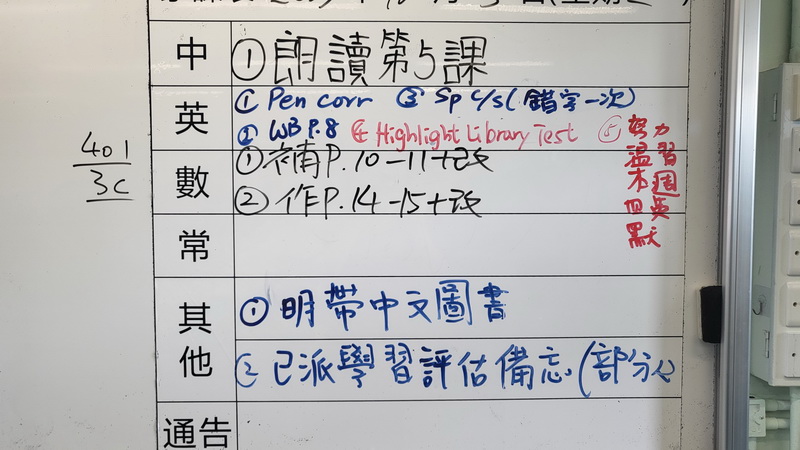 中
① 朗讀第5課
英
① Pen corr ③ Sp c/s (錯字一次)
② WB P.8 ④ Highlight Library Test ⑤ 努力溫習本週四英默
401
3C
數
① 補 P.10-11+改
② 作 P.14-15+改
常
其他
① 明帶中文圖書
② 已派學習評估備忘(部分人)
通告